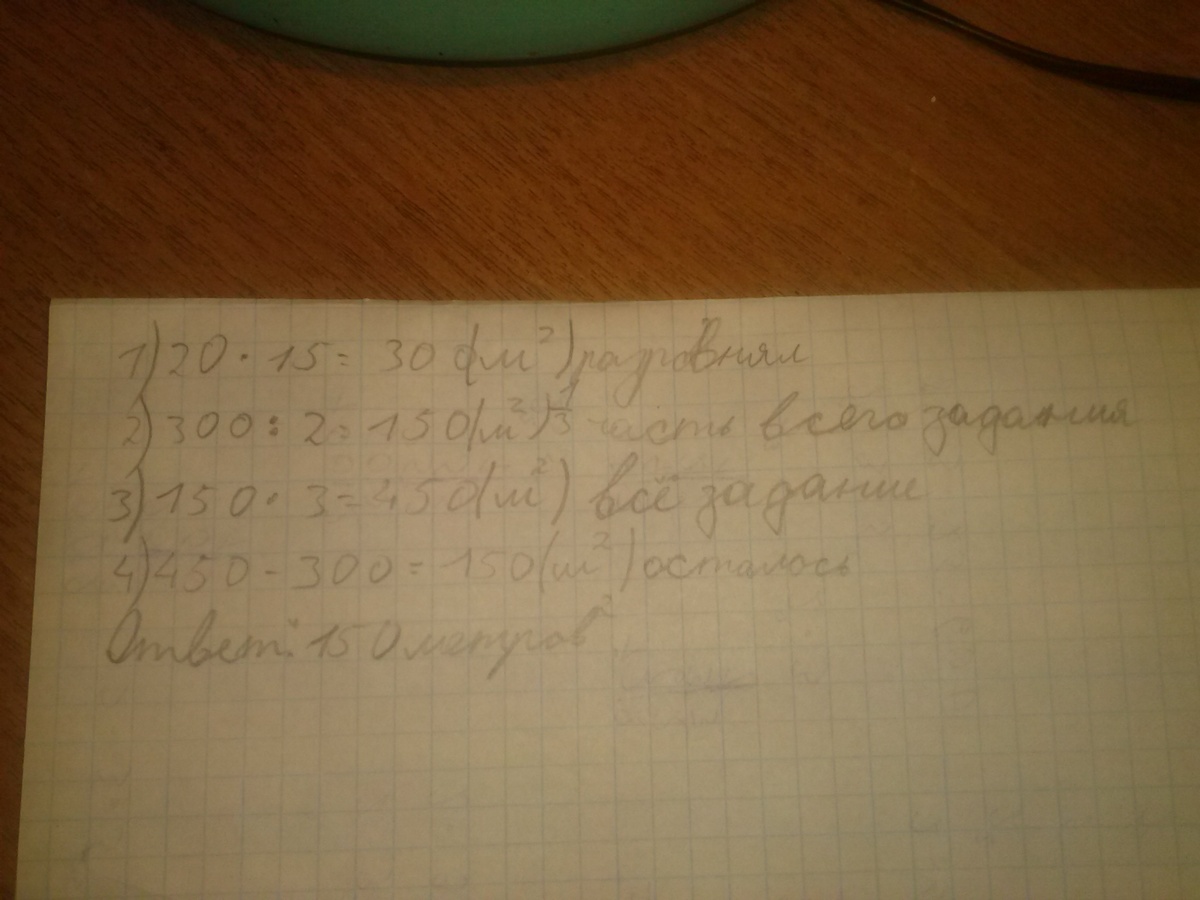 1) 20 · 15 = 300 (м²) разровнял
2) 300 : 2 = 150 (м²) 1/3 часть всего задания
3) 150 · 3 = 450 (м²) всё задание
4) 450 - 300 = 150 (м²) осталось
Ответ: 150 метров²